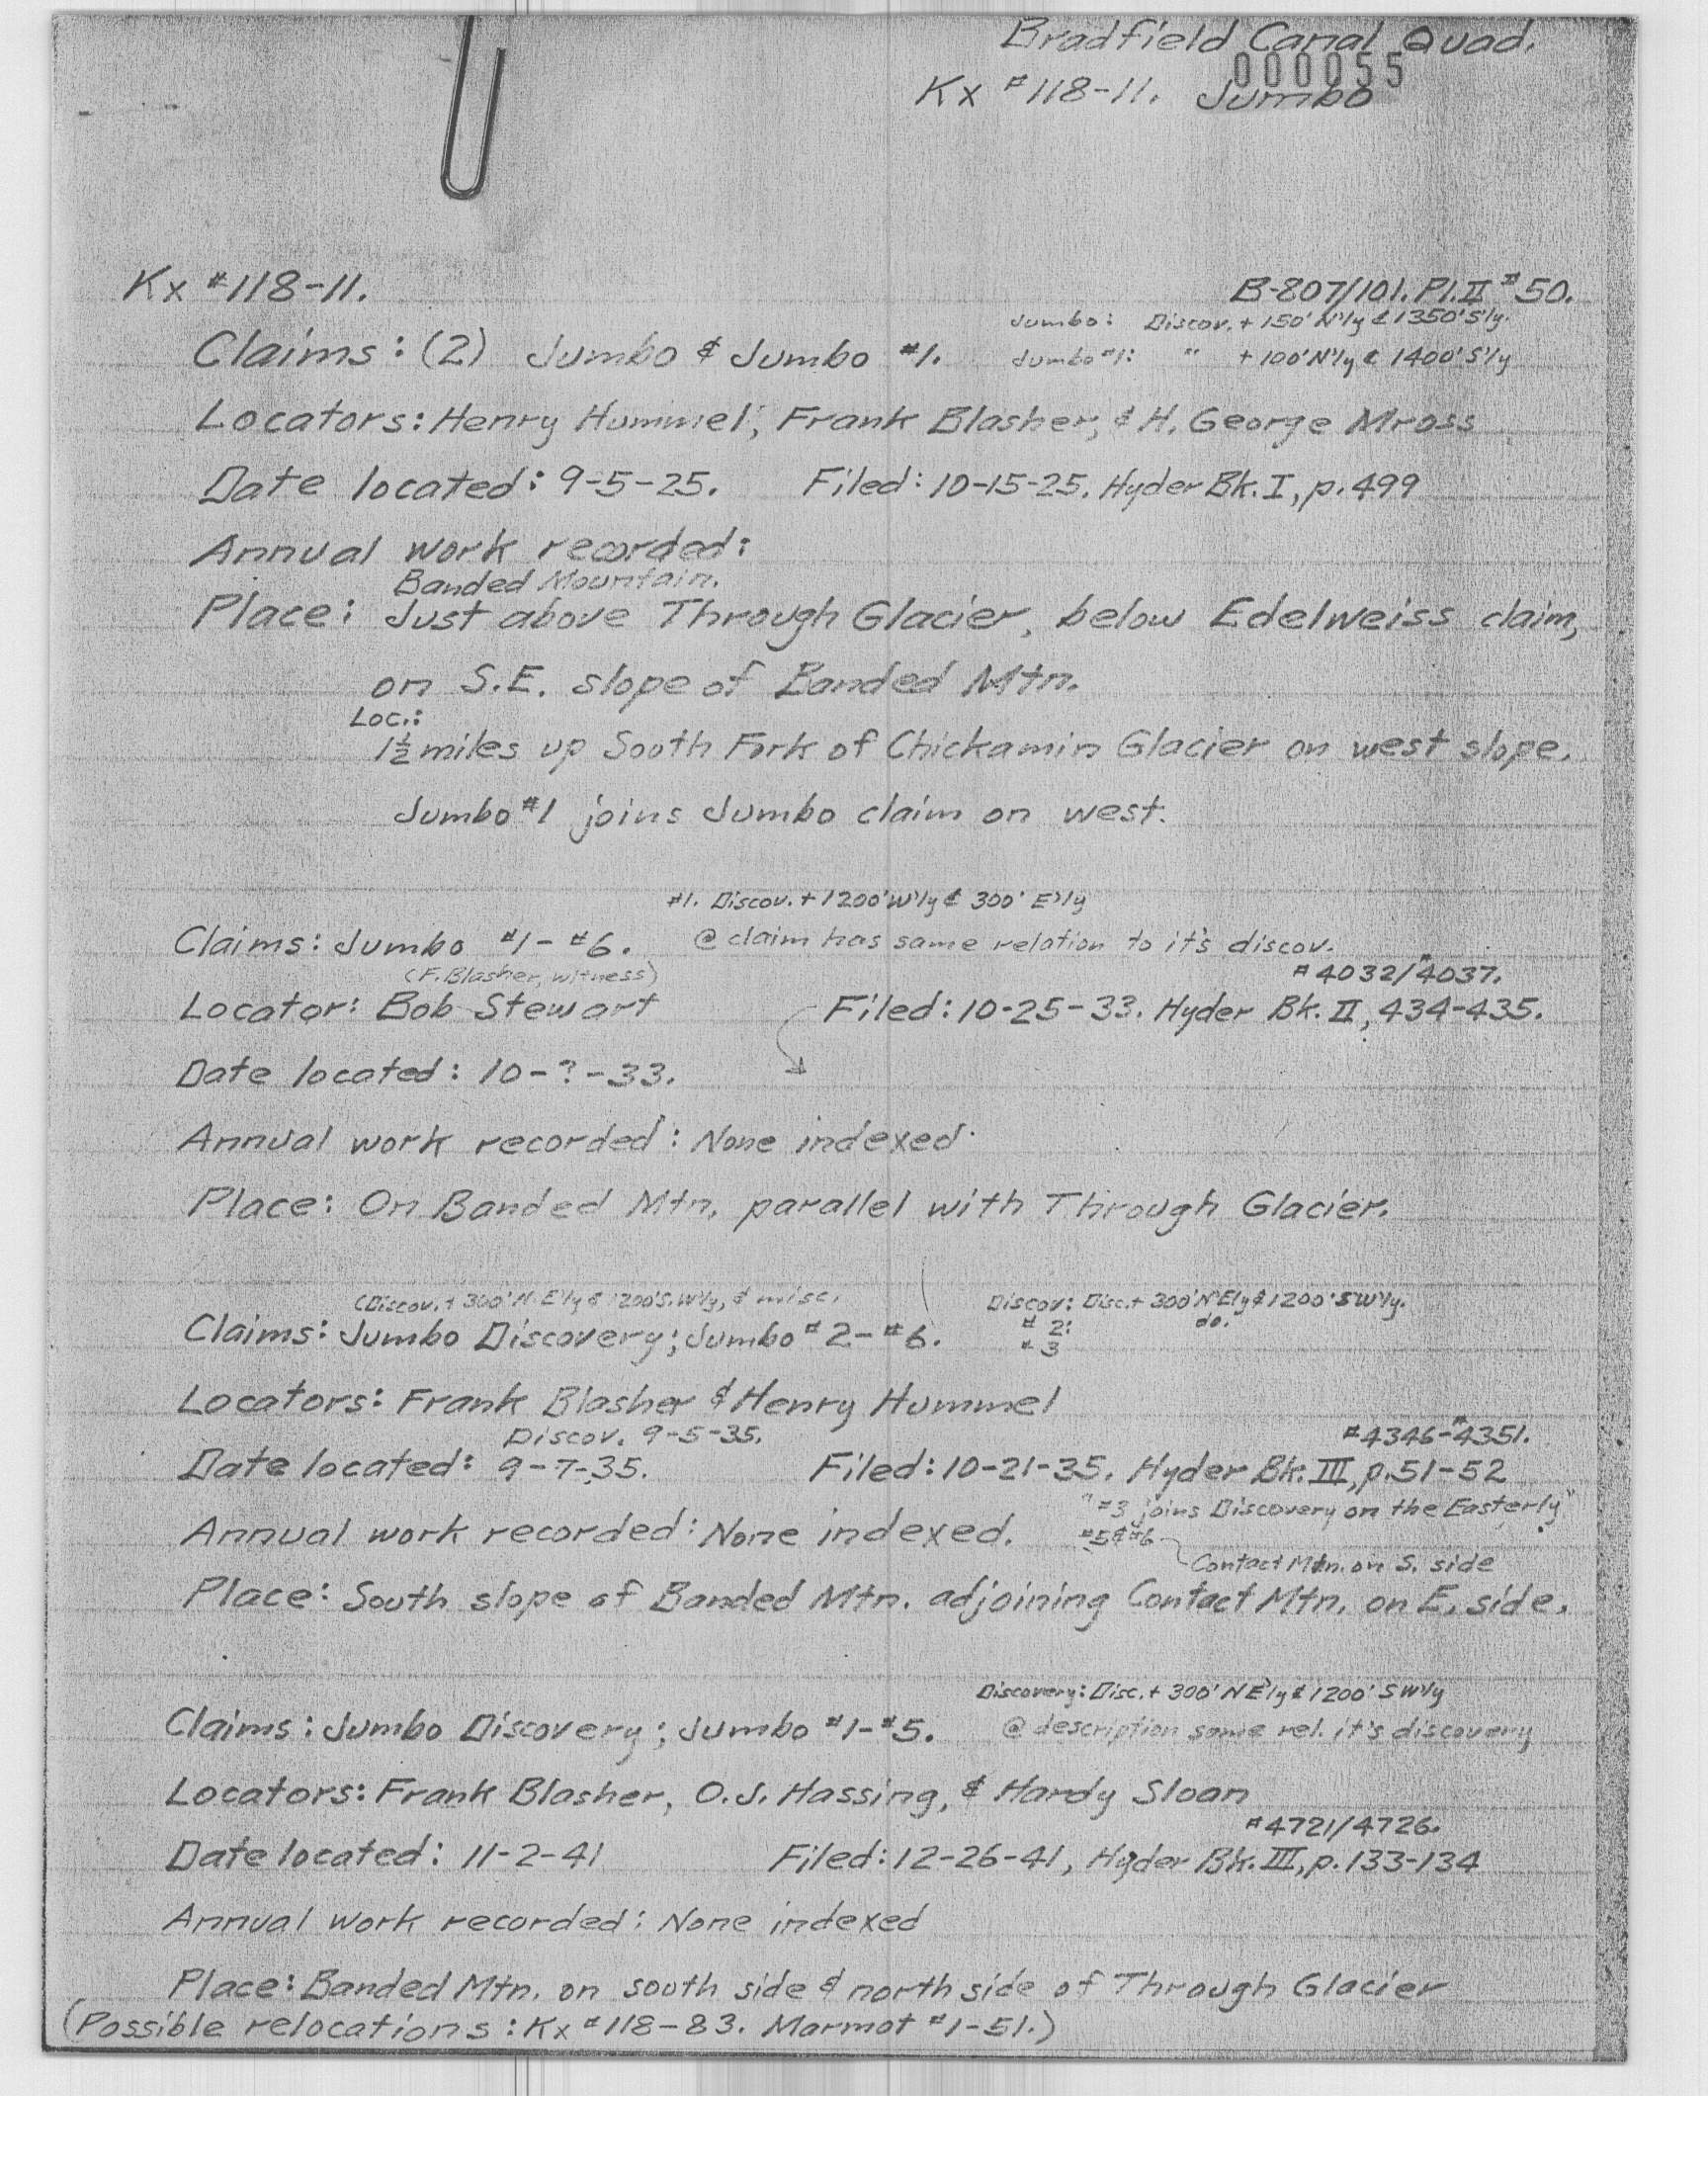 Bradfield Canal Quad.
000055
Kx #118-11. Jumbo
Kx #118-11.
B-807/101. Pl. II #50.
Jumbo: Discov. + 150' N'ly & 1350' S'ly.
Claims: (2) Jumbo & Jumbo #1.
Jumbo #1: " + 100' N'ly & 1400' S'ly
Locators: Henry Hummel, Frank Blasher, & H. George Mross
Date located: 9-5-25. Filed: 10-15-25. Hyder Bk. I, p. 499
Annual work recorded:
Banded Mountain.
Place: Just above Through Glacier, below Edelweiss claim,
on S.E. slope of Banded Mtn.
Loc.:
1½ miles up South Fork of Chickamin Glacier on west slope.
Jumbo #1 joins Jumbo claim on west.
#1. Discov. + 1200' W'ly & 300' E'ly
Claims: Jumbo #1 - #6. @ claim has same relation to it's discov.
(F. Blasher, witness) #4032/#4037.
Locator: Bob Stewart Filed: 10-25-33. Hyder Bk. II, 434-435.
Date located: 10-?-33.
Annual work recorded: None indexed.
Place: On Banded Mtn. parallel with Through Glacier.
(Discov. + 300' N.E'ly & 1200' S.W'ly, & misc. Discov: Disc. + 300' N'E'ly & 1200' SW'ly.
Claims: Jumbo Discovery; Jumbo #2 - #6. #2: do.
#3
Locators: Frank Blasher & Henry Hummel
Discov. 9-5-35. #4346-#4351.
Date located: 9-7-35. Filed: 10-21-35. Hyder Bk. III, p. 51-52
"#3 joins Discovery on the Easterly"
Annual work recorded: None indexed. #5 & #6
Contact Mtn. on S. side
Place: South slope of Banded Mtn. adjoining Contact Mtn. on E. side.
Discovery: Disc. + 300' N E'ly & 1200' S W'ly
Claims: Jumbo Discovery; Jumbo #1 - #5. @ description same rel. it's discovery
Locators: Frank Blasher, O.J. Hassing, & Hardy Sloan
#4721/4726.
Date located: 11-2-41 Filed: 12-26-41, Hyder Bk. III, p. 133-134
Annual work recorded: None indexed
Place: Banded Mtn. on south side & north side of Through Glacier
(Possible relocations: Kx #118-83. Marmot #1-51.)